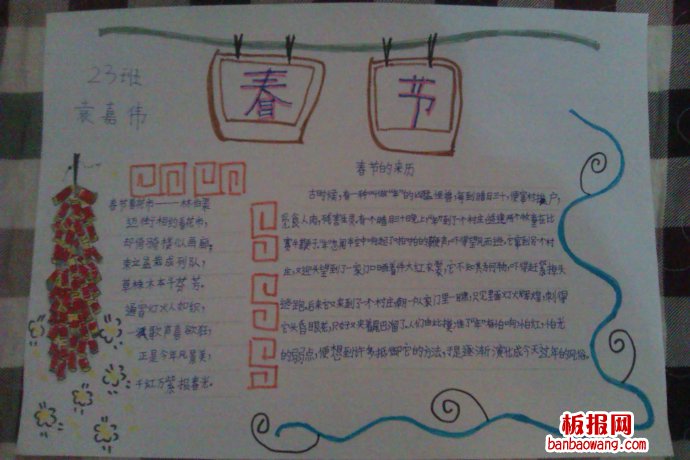 春 节
23班
袁嘉伟
春节的来历
春节看花市——林伯渠
迈街相约看花市,
却倚骑楼似画廊。
束立盆栽成列队,
草株木本斗芬芳。
通宵灯火人如织,
一派歌声喜欲狂。
正是今年风景美,
千红万紫报春光。
古时候,有一种叫做"年"的凶猛怪兽,每到腊月三十,便窜村挨户,
觅食人肉,残害生灵。有个腊月三十晚上,"年"到了个村庄,适逢两个牧童在比
赛牛鞭子。"年"忽闻半空中响起了啪啪的鞭声,吓得望风而逃。它窜到另个村
庄,又迎头望到了一家门口晒着件大红衣裳,它不知其为何物,吓得赶紧掉头
逃跑。后来它又来到了一个村庄,朝一户人家门里一瞧,只见里面灯火辉煌,刺得
它头昏眼花,只好又夹着尾巴溜了。人们由此摸准了"年"有怕响,怕红,怕光
的弱点,便想到许多抵御它的方法,于是逐渐演化成今天过年的风俗。
板报网
banbaowang.com